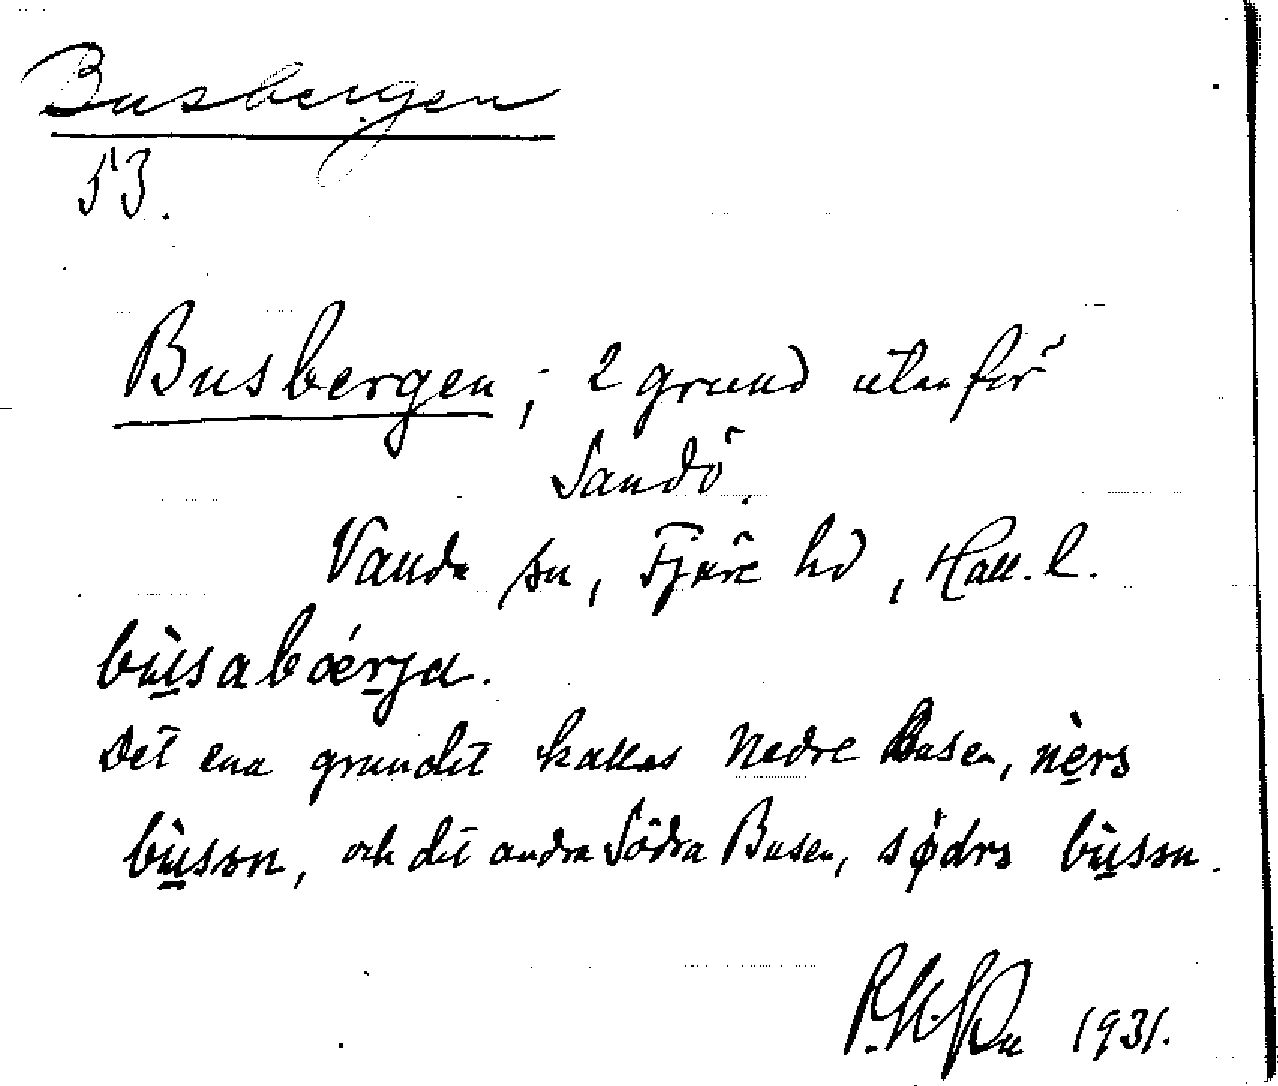 Busbergen
53.
Busbergen; 2 grund utanför
Sandö.
Vanda sn, Fjäre hd, Hall. l.
bùsabǿrja.
Det ena grundet kallas Nedre Busen, nèrə
bùsən, och det andra Södra Busen, sødrə bùsən.
1931.